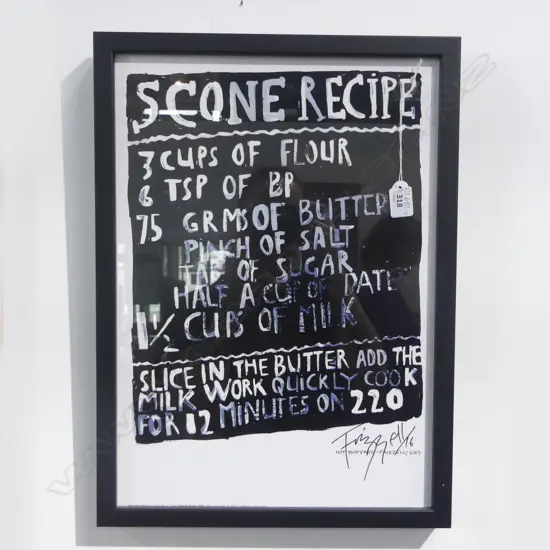 SCONE RECIPE
3 CUPS OF FLOUR
6 TSP OF BP
75 GRMS OF BUTTER
PINCH OF SALT
TAB OF SUGAR
HALF A CUP OF DATE
1½ CUPS OF MILK
SLICE IN THE BUTTER ADD THE
MILK WORK QUICKLY COOK
FOR 12 MINUTES ON 220
Frizzell 16
318